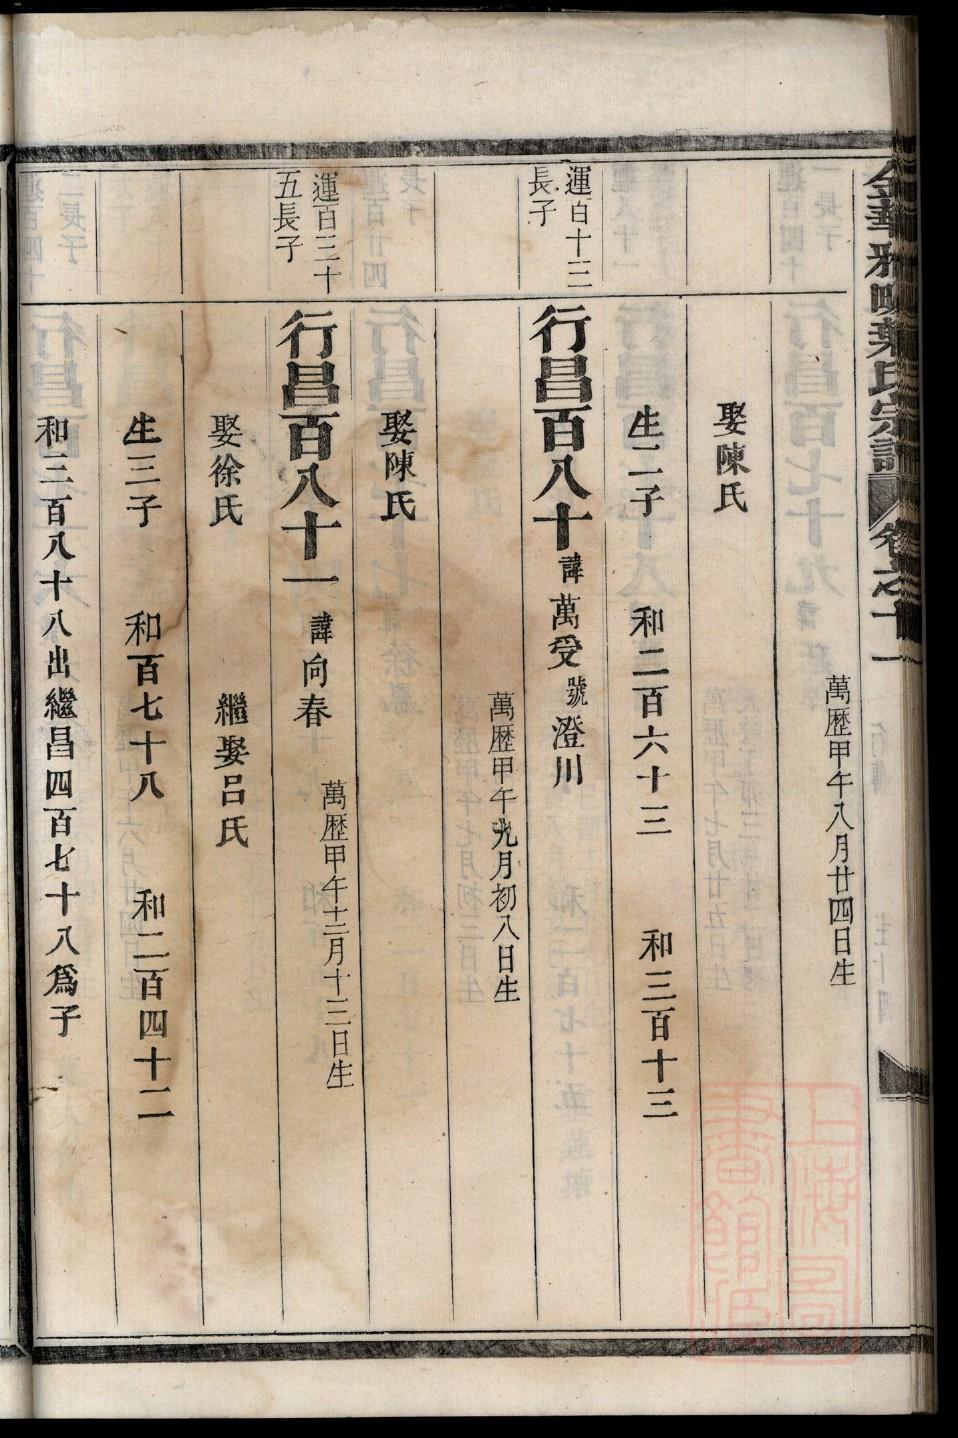 金華雅畈葉氏宗譜 卷之十一
萬歷甲午八月廿四日生
娶陳氏
生二子 和二百六十三 和三百十三
運百十三
長子
行昌百八十 諱萬受 號澄川
萬歷甲午九月初八日生
娶陳氏
運百三十
五長子
行昌百八十一 諱向春
萬歷甲午十二月十三日生
娶徐氏 繼娶呂氏
生三子 和百七十八 和二百四十二
和二百八十八出繼昌四百七十八爲子